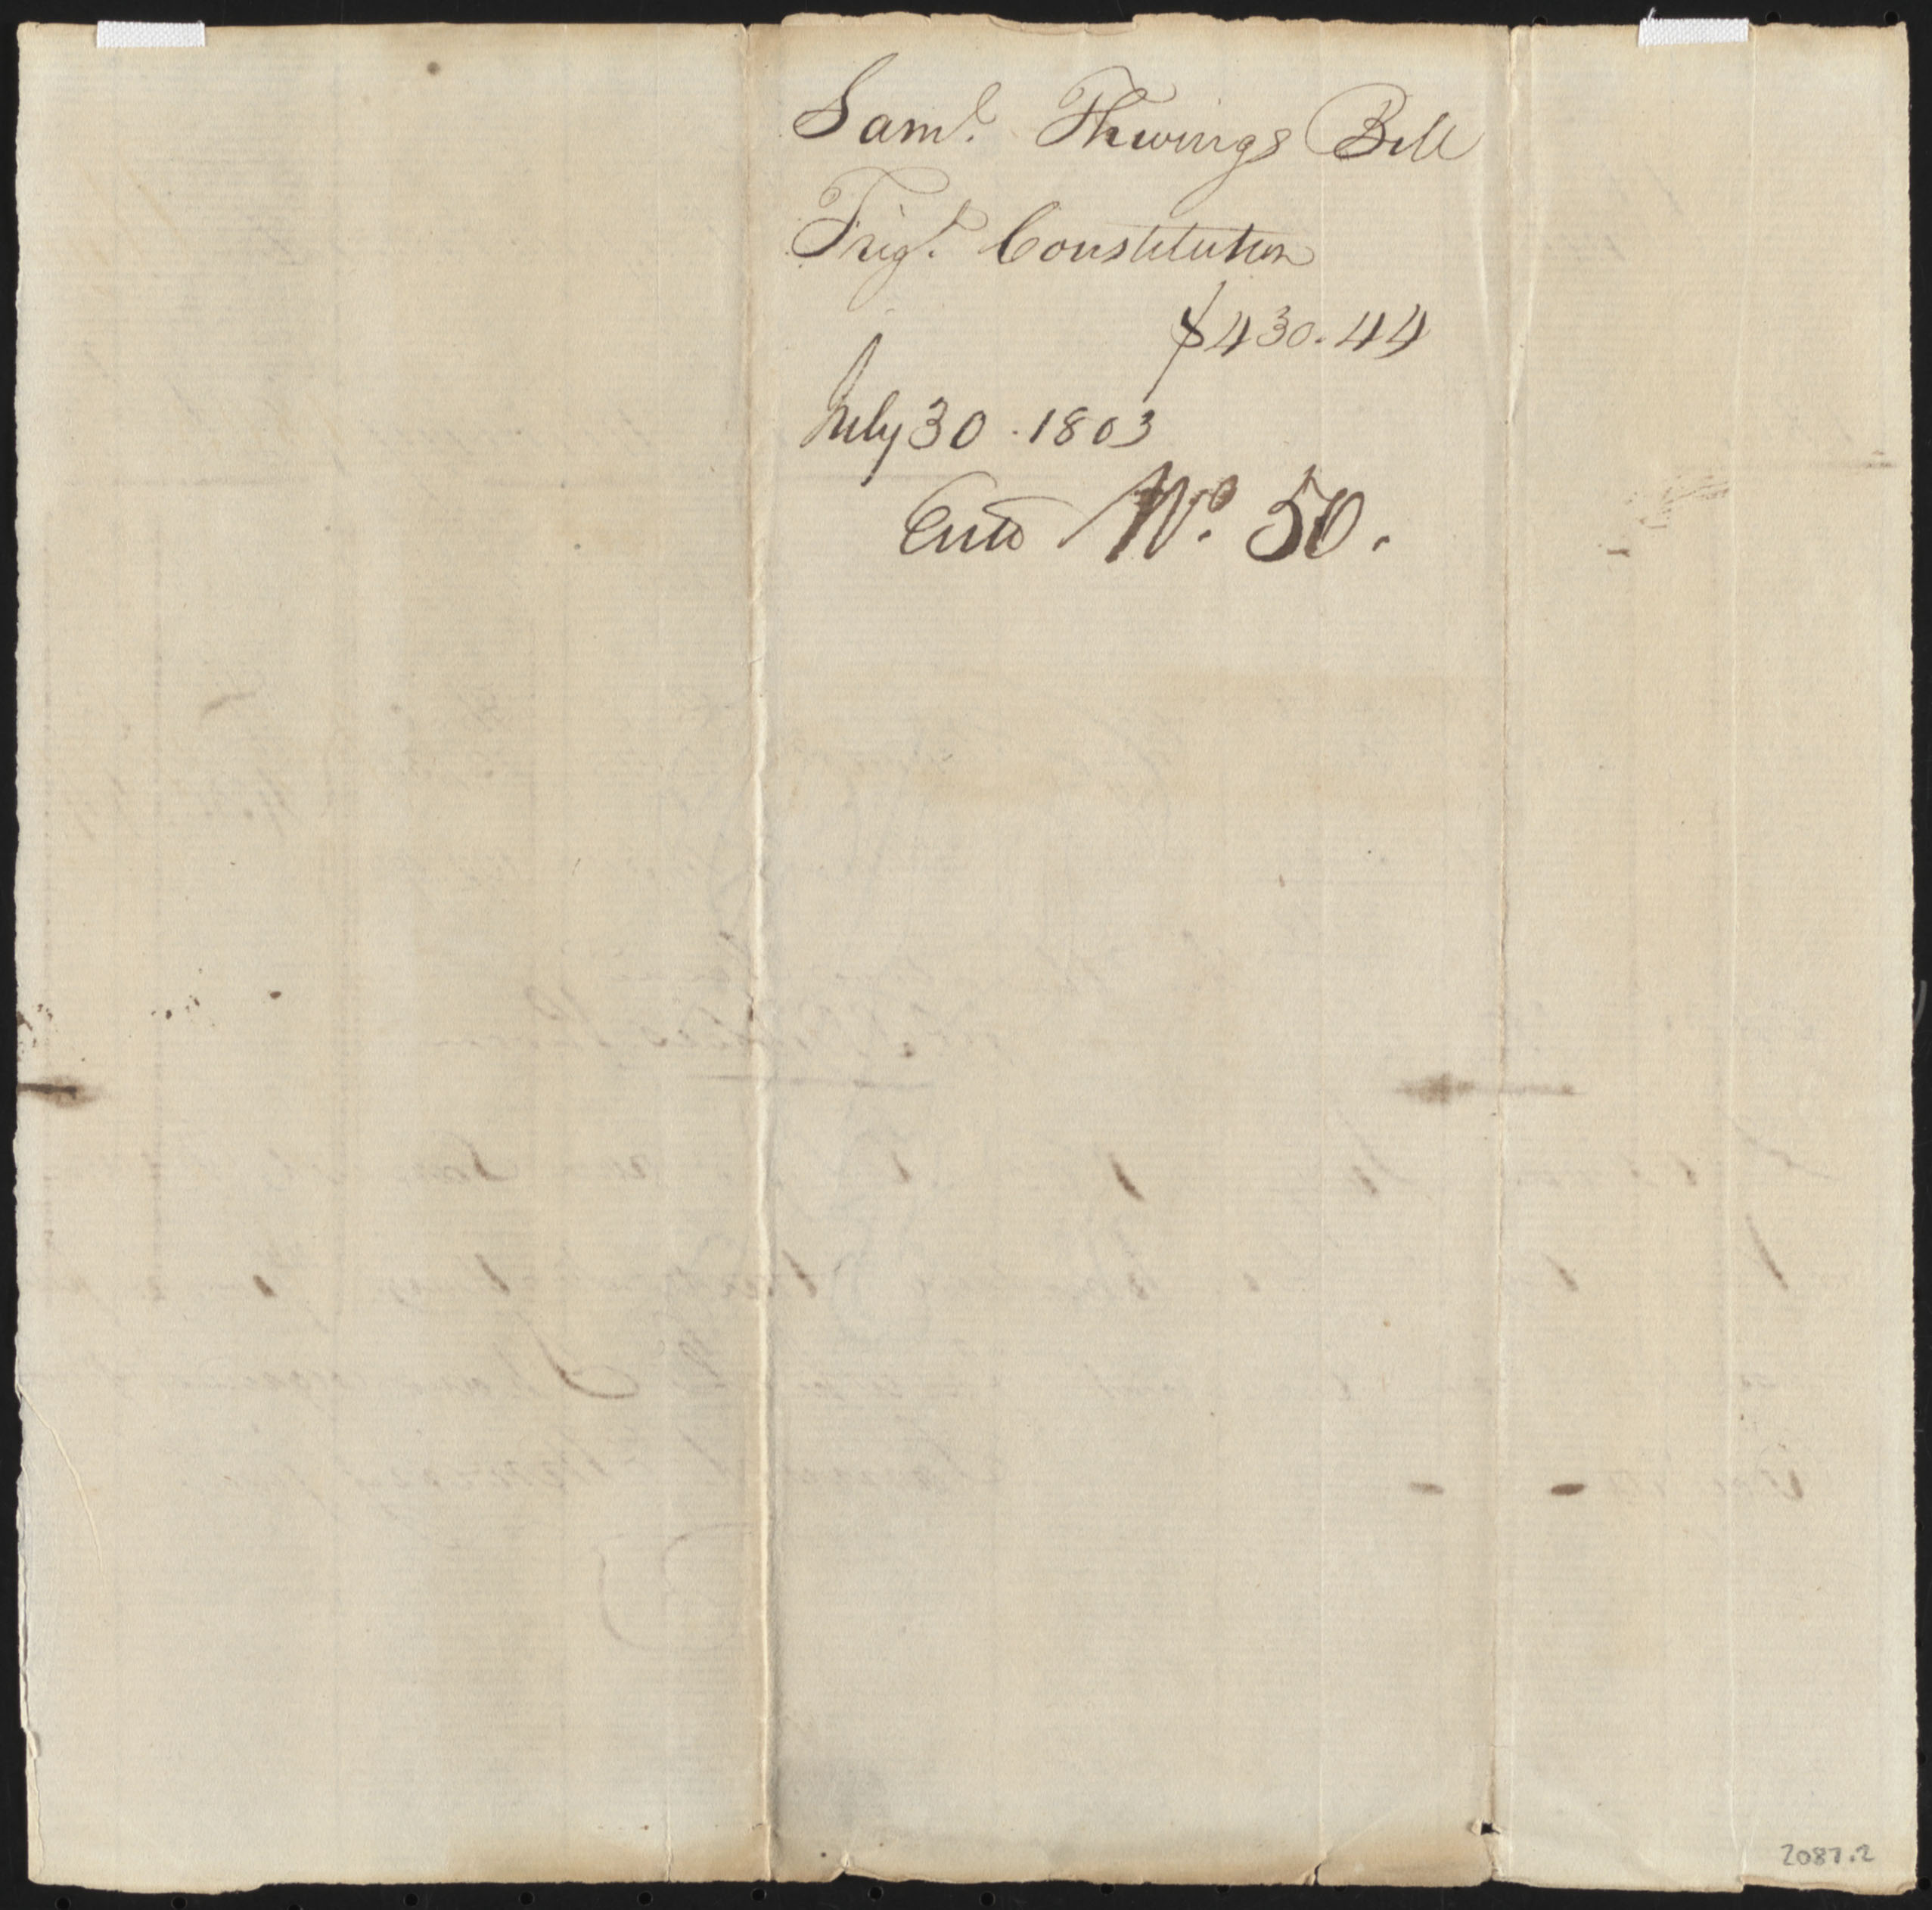 Saml. Thwings Bill
Frigt. Constitution
$430.44
July 30. 1803
Entd No. 50.
2087.2